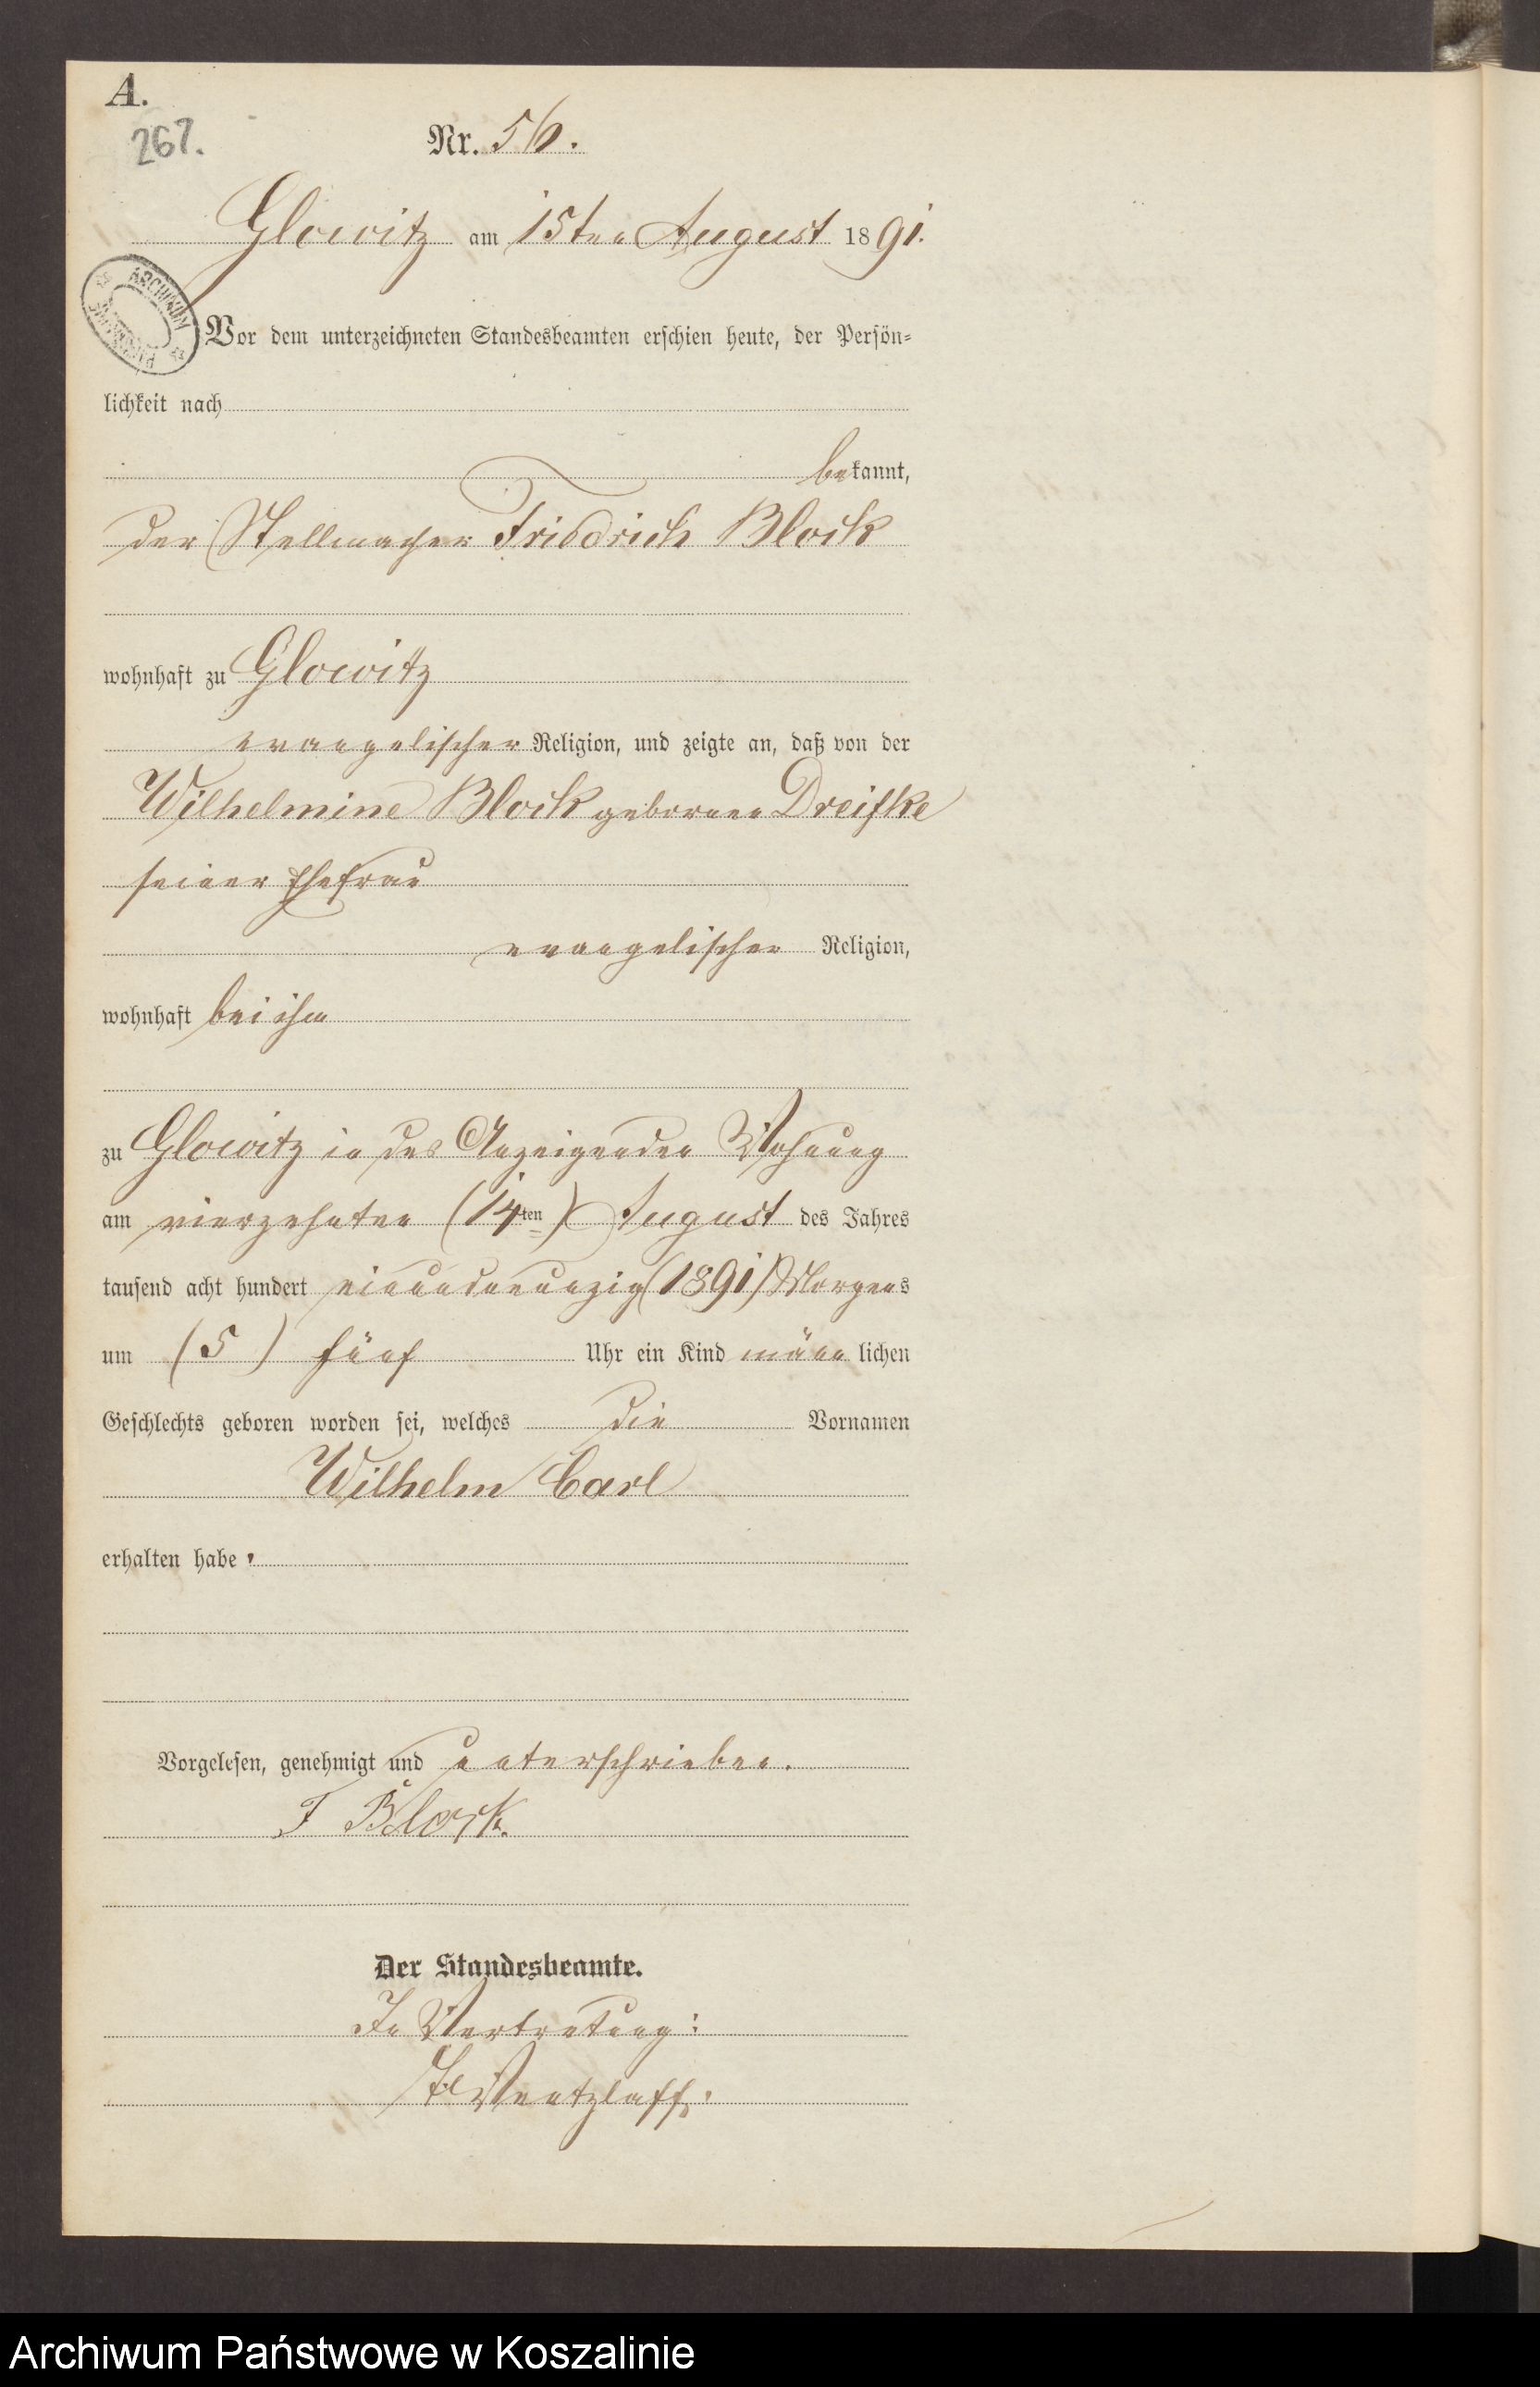 A.
267.
Nr. 56.
Glowitz am 15ten August 1891.
ARCHIWUM
Vor dem unterzeichneten Standesbeamten erschien heute, der Persön-
lichkeit nach
bekannt,
der Stellmacher Fridrich Block
wohnhaft zu Glowitz
evangelischer Religion, und zeigte an, daß von der
Wilhelmine Block geborenen Dreifke
seiner Ehefrau
evangelischer Religion,
wohnhaft bei ihm
zu Glowitz in des Anzeigenden Wohnung
am vierzehnten (14ten) August des Jahres
tausend acht hundert einundneunzig (1891) Morgens
um (5) fünf Uhr ein Kind männlichen
Geschlechts geboren worden sei, welches die Vornamen
Wilhelm Carl
erhalten habe.
Vorgelesen, genehmigt und unterschrieben.
F Block.
Der Standesbeamte.
In Vertretung:
Wentzlaff.
Archiwum Państwowe w Koszalinie